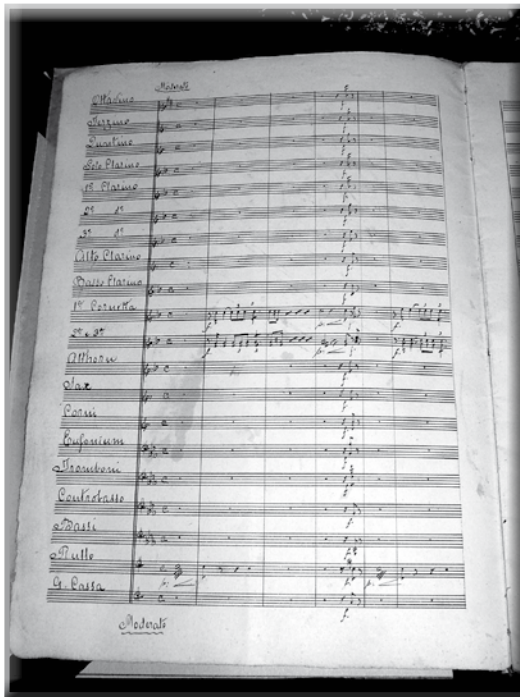 Moderato
Ottavino
Terzino
Quartino
Solo Clarino
1º Clarino
2º 1º
3º 1º
Alto Clarino
Basso Clarino
1ª Cornetta
2ª e 3ª
Althorn
Sax
Corni
Eufonium
Tromboni
Contrabasso
Bassi
Rullo
G. Cassa
Moderato